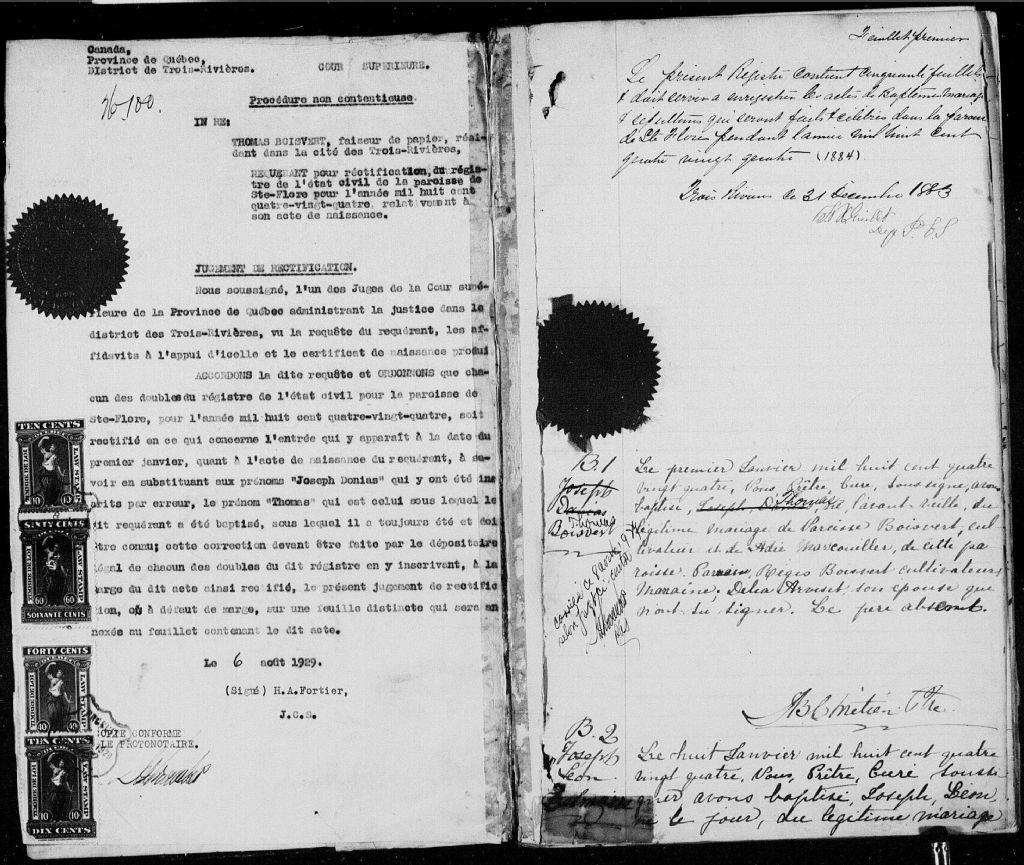 Canada,
Province de Québec,
District de Trois-Rivières.
COUR SUPERIEURE.
26100.
Procédure non contentieuse
IN RE:
THOMAS BOISVERT, faiseur de papier, rési
dant dans la cité des Trois-Rivières,
REQUERANT pour réctification, du régis
tre de l'état civil de la paroisse de
Ste-Flore pour l'année mil huit cent
quatre-vingt-quatre, relativement à
son acte de naissance.
JUGEMENT DE RECTIFICATION.
Nous soussigné, l'un des Juges de la Cour supé-
rieure de la Province de Québec administrant la justice dans le
district des Trois-Rivières, vu la requête du requérant, les af-
fidavits à l'appui d'icelle et le certificat de naissance produi
ACCORDONS la dite requête et ORDONNONS que cha-
cun des doubles du régistre de l'état civil pour la paroisse de
Ste-Flore, pour l'année mil huit cent quatre-vingt-quatre, soit
rectifié en ce qui concerne l'entrée qui y apparaît à la date du
premier janvier, quant à l'acte de naissance du requérant, à sa-
voir en substituant aux prénoms "Joseph Donias" qui y ont été ins
crits par erreur, le prénom "Thomas" qui est celui sous lequel le
dit requérant a été baptisé, sous lequel il a toujours été et doi
être connu; cette correction devant être faite par le dépositaire
légal de chacun des doubles du dit régistre en y inscrivant, à la
marge du dit acte ainsi rectifié, le présent jugement de rectific
tion, ou à défaut de marge, sur une feuille distincte qui sera an
nexés au feuillet contenant le dit acte.
Le 6 août 1929.
(Signé) H.A.Fortier,
J.C.S.
COPIE CONFORME
LE PROTONOTAIRE.
TEN CENTS
QUEBEC
TIMBRE DE LOI
LAW STAMP
10 10
SIXTY CENTS
TIMBRE DE LOI
LAW STAMP
60 60
SOIXANTE CENTS
FORTY CENTS
QUEBEC
TIMBRE DE LOI
LAW STAMP
40 40
TEN CENTS
QUEBEC
TIMBRE DE LOI
LAW STAMP
10 10
DIX CENTS
Feuillet premier
Le présent Régistre contient cinquante feuillets
& doit servir à enregistrer les actes de Baptêmes, mariages
& sépultures qui seront faits & célébrés dans la paroisse
de Ste Flore pendant l'année mil huit cent
quatre vingt quatre (1884)
Trois Rivières ce 21 Décembre 1883
Dep P.C.S
B.1
Joseph
Donias
Thomas
Boisvert
Le premier Janvier mil huit cent quatre
vingt quatre, Nous, Prêtre, Curé, Soussigné, avons
baptisé, Joseph Donias Thomas né, l'avant-veille, du
légitime mariage de Paroisse Boisvert, cul
tivateur et de Adée Marcouiller, de cette pa
roisse. Parrain, Régis Boisvert cultivateur,
Marraine. Délia Arviset, son épouse qui
n'ont su signer. Le père absent.
Chrétien Ptre.
B.2
Joseph
Léon
Le huit Janvier mil huit cent quatre
vingt quatre, Nous, Prêtre, Curé soussi
gner avons baptisé, Joseph, Léon,
né le jour, du légitime mariage